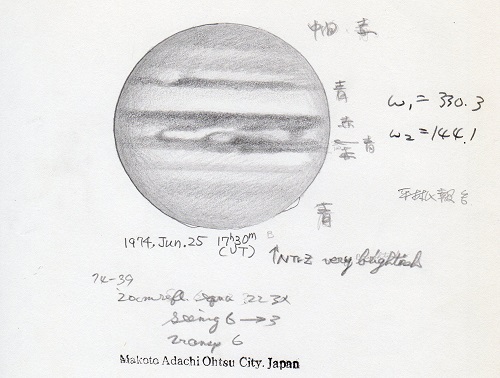 青
赤
青
赤
青
ω₁ = 330.3
ω₂ = 144.1
1974, Jun. 25 17ʰ30ᵐ
(UT)
↑NTrZ very brightish
74-39
20cm refl. 223X
seeing 6 → 3
transp 6
Makoto Adachi Ohtsu City. Japan